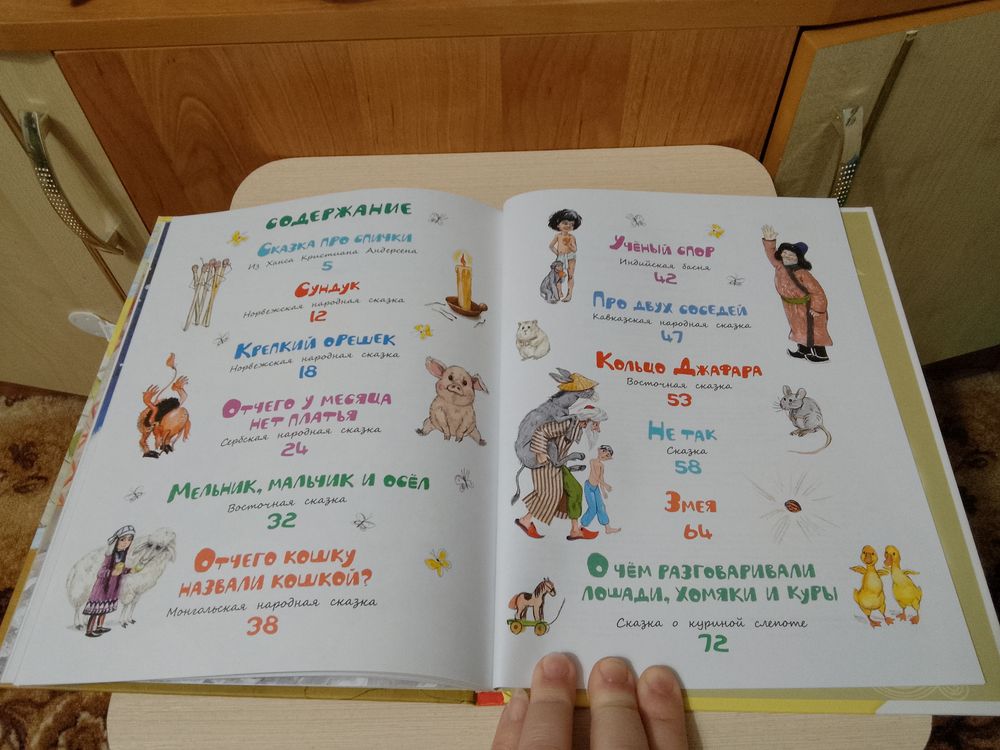 СОДЕРЖАНИЕ
СКАЗКА ПРО СПИЧКИ
Из Ханса Кристиана Андерсена
5
СУНДУК
Норвежская народная сказка
12
КРЕПКИЙ ОРЕШЕК
Норвежская народная сказка
18
ОТЧЕГО У МЕСЯЦА
НЕТ ПЛАТЬЯ
Сербская народная сказка
24
МЕЛЬНИК, МАЛЬЧИК И ОСЁЛ
Восточная сказка
32
ОТЧЕГО КОШКУ
НАЗВАЛИ КОШКОЙ?
Монгольская народная сказка
38
УЧЁНЫЙ СПОР
Индийская басня
42
ПРО ДВУХ СОСЕДЕЙ
Кавказская народная сказка
47
КОЛЬЦО ДЖАФАРА
Восточная сказка
53
НЕ ТАК
Сказка
58
ЗМЕЯ
64
О ЧЁМ РАЗГОВАРИВАЛИ
ЛОШАДИ, ХОМЯКИ И КУРЫ
Сказка о куриной слепоте
72